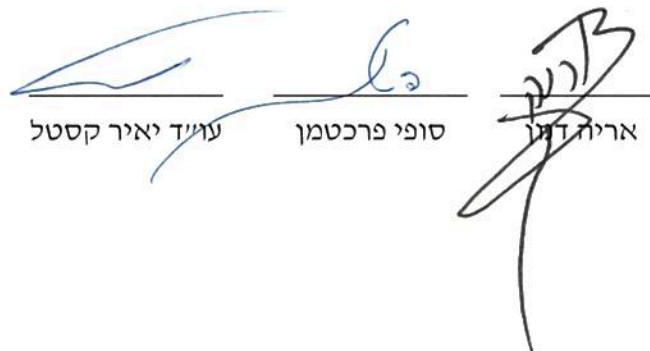 אריה סופי פרכטמן עו״ד יאיר קסטל